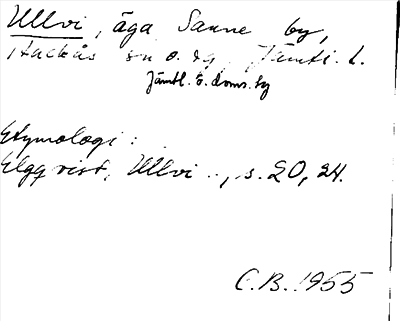 Ullvi, äga Sanne by,
Hackås sn o. tg, Jämtl. l.
Jämtl. ö. doms. hy
Etymologi:
Elgqvist, Ullvi .., s. 20, 24.
C.B. 1955